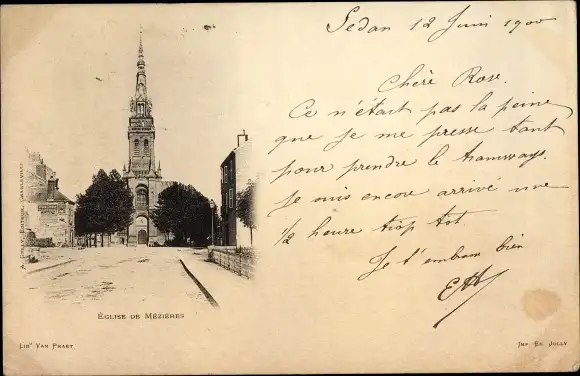 Sedan 12 Juni 1900
Chère Rose.
Ce n'était pas la peine
que je me presse tant
pour prendre le tramways.
Je suis encore arrivé une
1/2 heure trop tôt.
Je t'embrasse bien
ÉGLISE DE MÉZIÈRES
LIBie VAN PRAET
IMP. ED. JOLLY